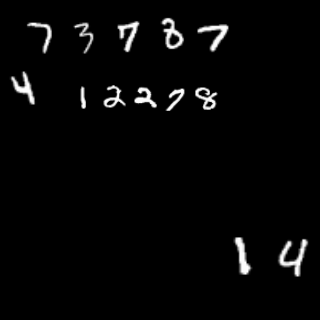 7 3 7 8 7
4 1 2 2 7 8
1 4